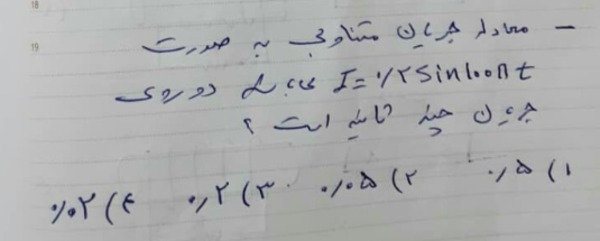 18
19
- معادله جریان متناوبی به صورت
I = ۰/۲ Sin100πt می باشد دوره‌ی
جریان چند ثانیه است ؟
۱) ۰/۵ ۲) ۰/۰۵ ۳) ۰/۲ ۴) ۰/۰۲